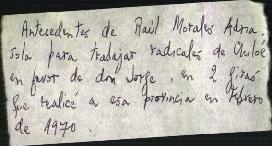 Antecedentes de Raúl Morales Adria.
sola para trabajar radicales de Chiloé
en favor de don Jorge, en 2 giras
que realicé a esa provincia en Febrero
de 1970.